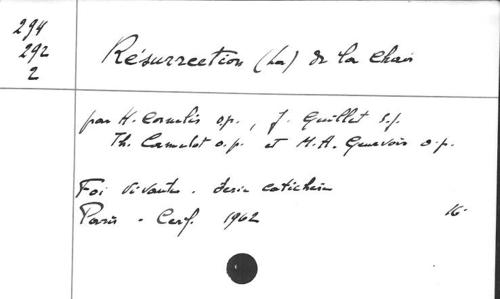 294
292
2
Résurrection (La) de la Chair
par H. Cornelis o.p., J. Guillet s.j.
Th. Camelot o.p. et M.A. Genevois o.p.
Foi vivante.
Paris - Cerf. 1962 16-